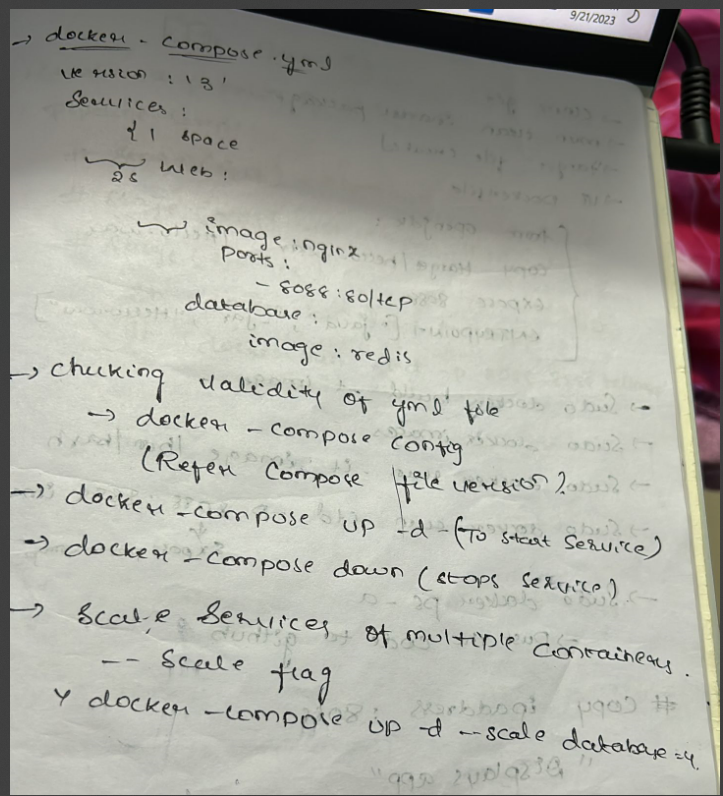 9/21/2023
→ docker - compose.yml
version : '3'
Services :
{ 1 space
2s web :
image : nginx
ports :
- 8088:80/tcp
database :
image : redis
→ Checking validity of yml file
→ docker - compose config
(Refer Compose file version?
→ docker - compose up -d - (To start Service)
→ docker - compose down (stops service)
→ Scale Services of multiple Containers.
-- Scale flag
docker - compose up -d --scale database=4